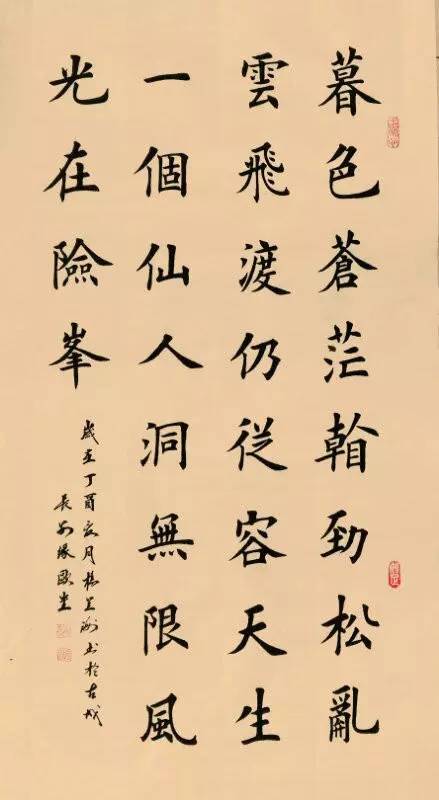 暮色蒼茫勁松亂
雲飛渡仍從容天生
一個仙人洞無限風
光在險峯
歲在丁酉月書於古城
長安緣堂